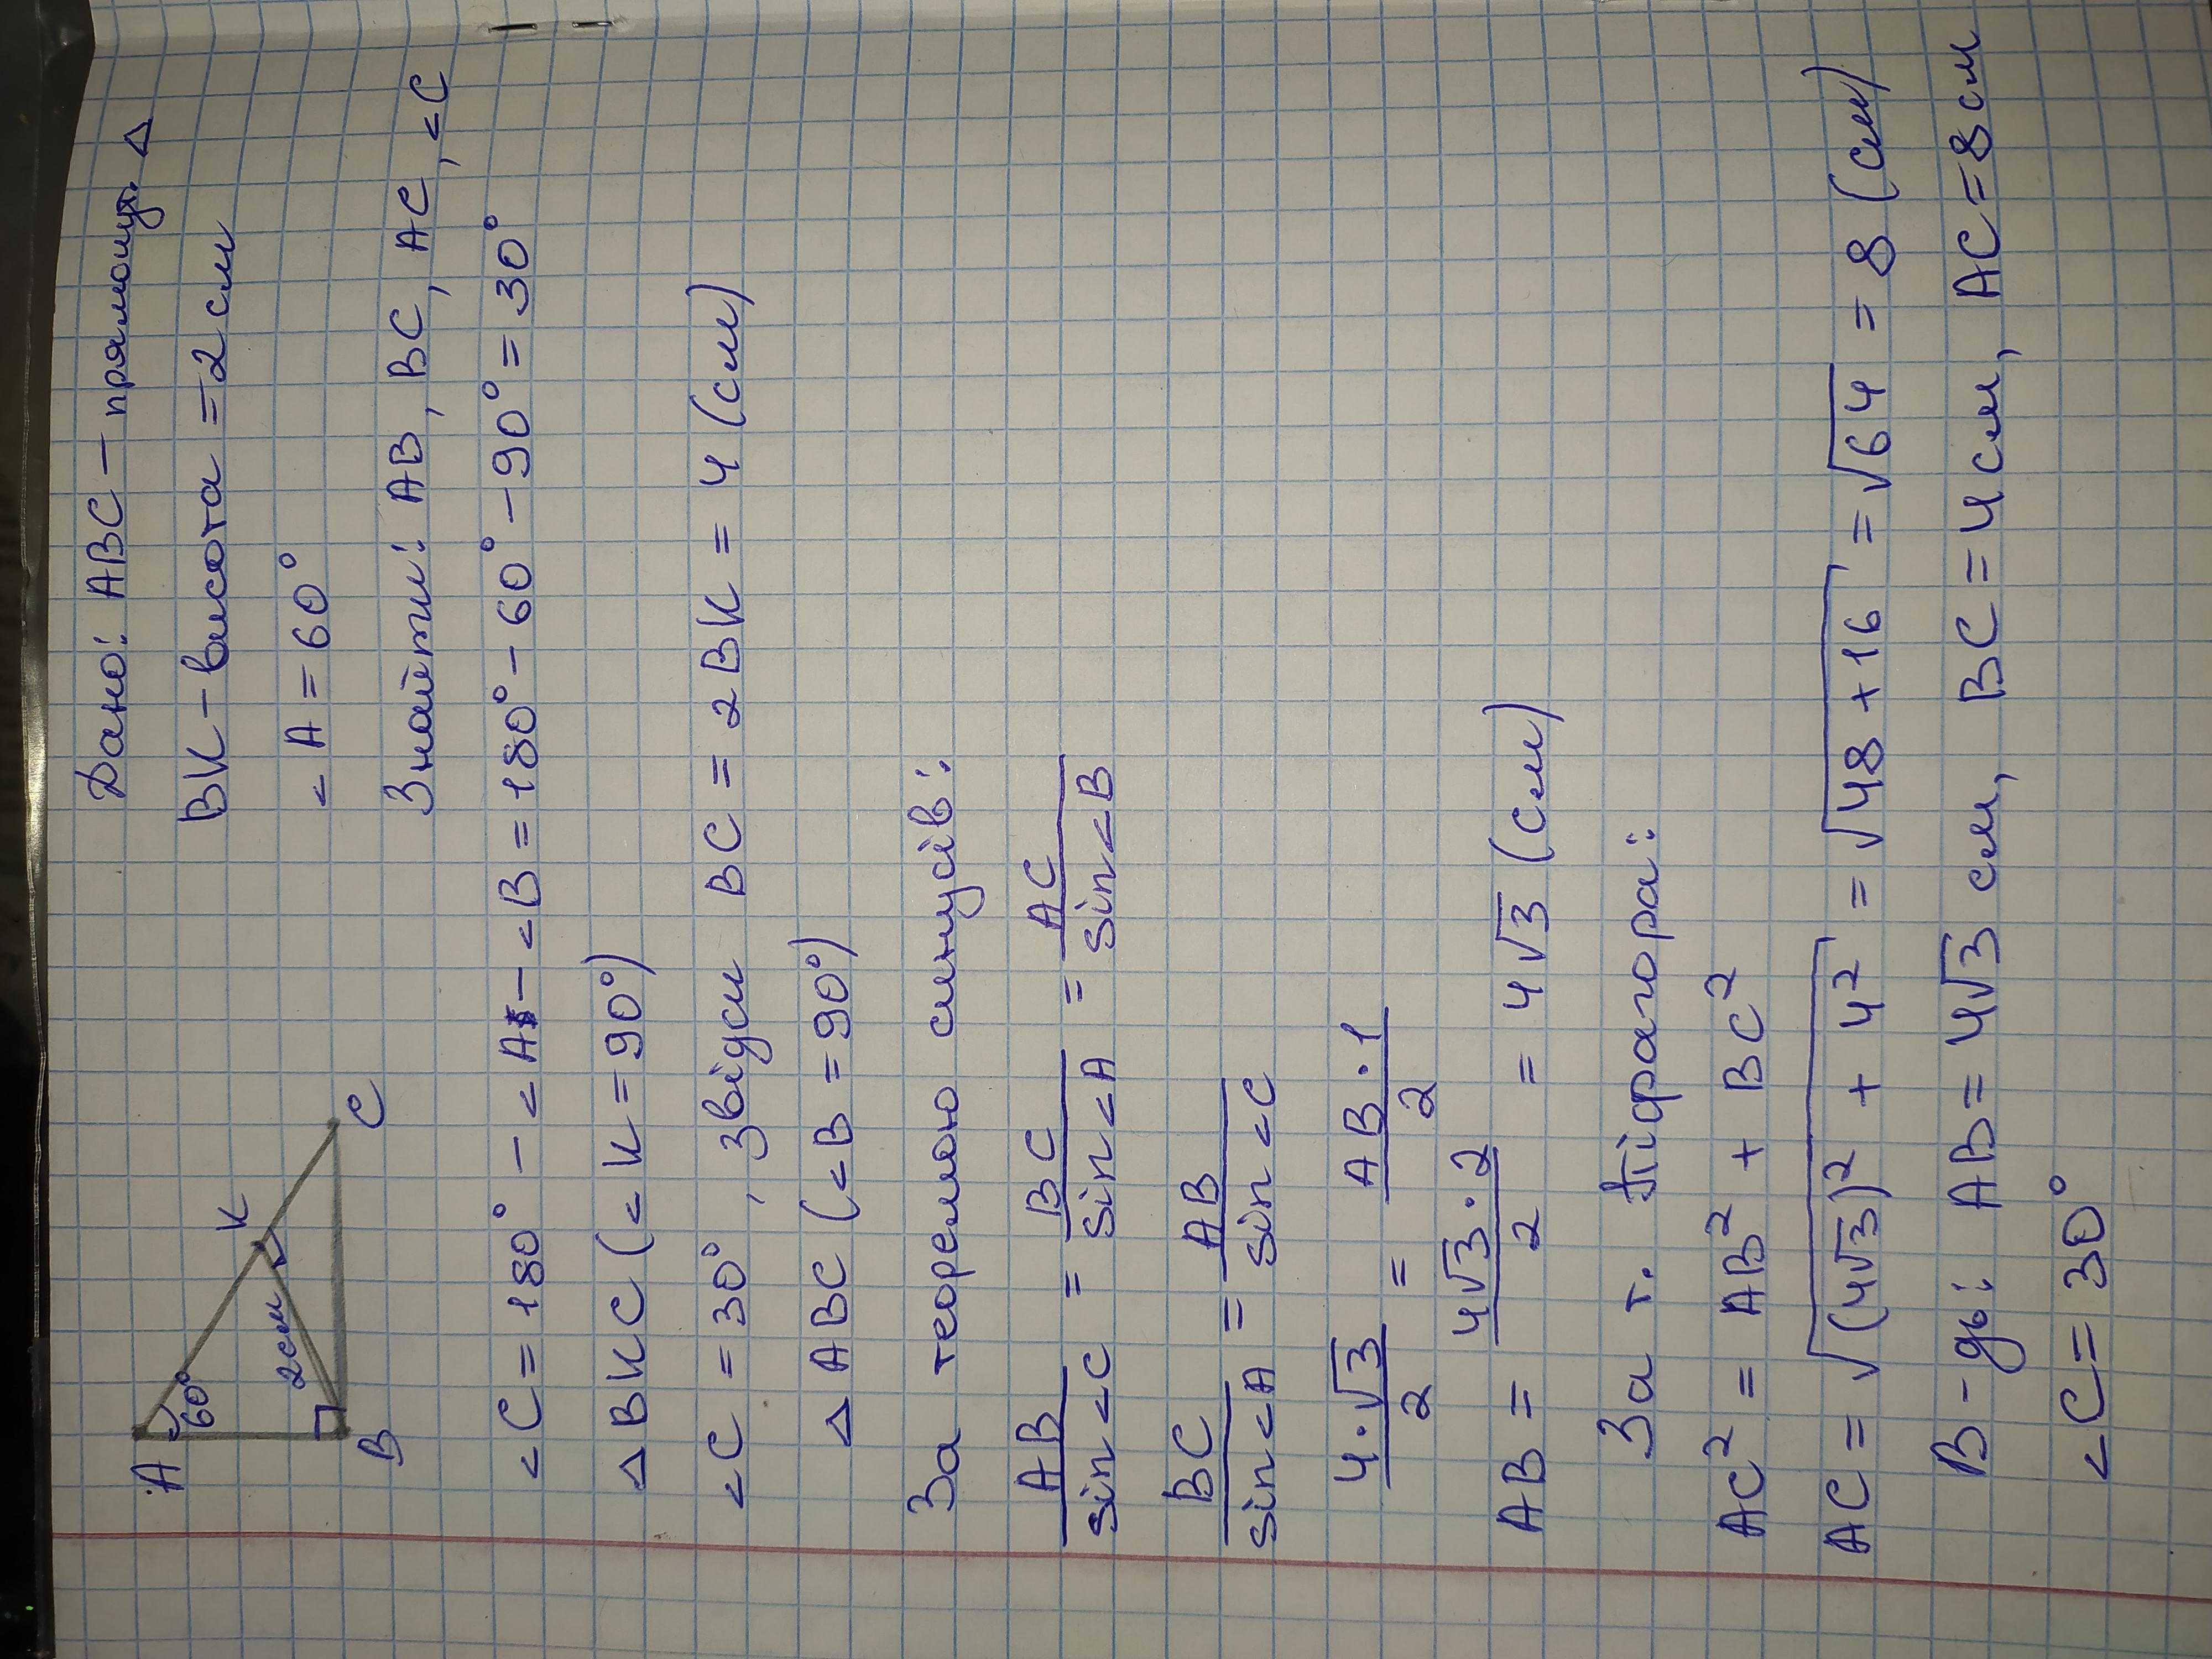 Дано: ABC – прямокут. △
BK – висота = 2 см
∠A = 60°
Знайти: AB, BC, AC, ∠C
A
60°
K
2 см
B
C
∠C = 180° – ∠A – ∠B = 180° – 60° – 90° = 30°
△ BKC (∠K = 90°)
∠C = 30°, звідси BC = 2BK = 4 (см)
△ ABC (∠B = 90°)
За теоремою синусів:
AB/sin∠C = BC/sin∠A = AC/sin∠B
BC/sin∠A = AB/sin∠C
4·√3/2 = AB·1/2
AB = 4√3·2/2 = 4√3 (см)
За т. Піфагора:
AC² = AB² + BC²
AC = √(4√3)² + 4² = √48+16 = √64 = 8 (см)
В-дь: AB = 4√3 см, BC = 4 см, AC = 8 см
∠C = 30°